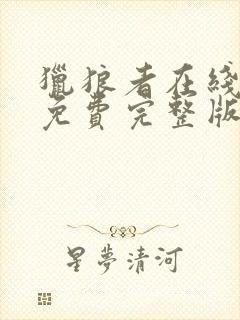 獵狼者在綫
免費完整版
星夢清河